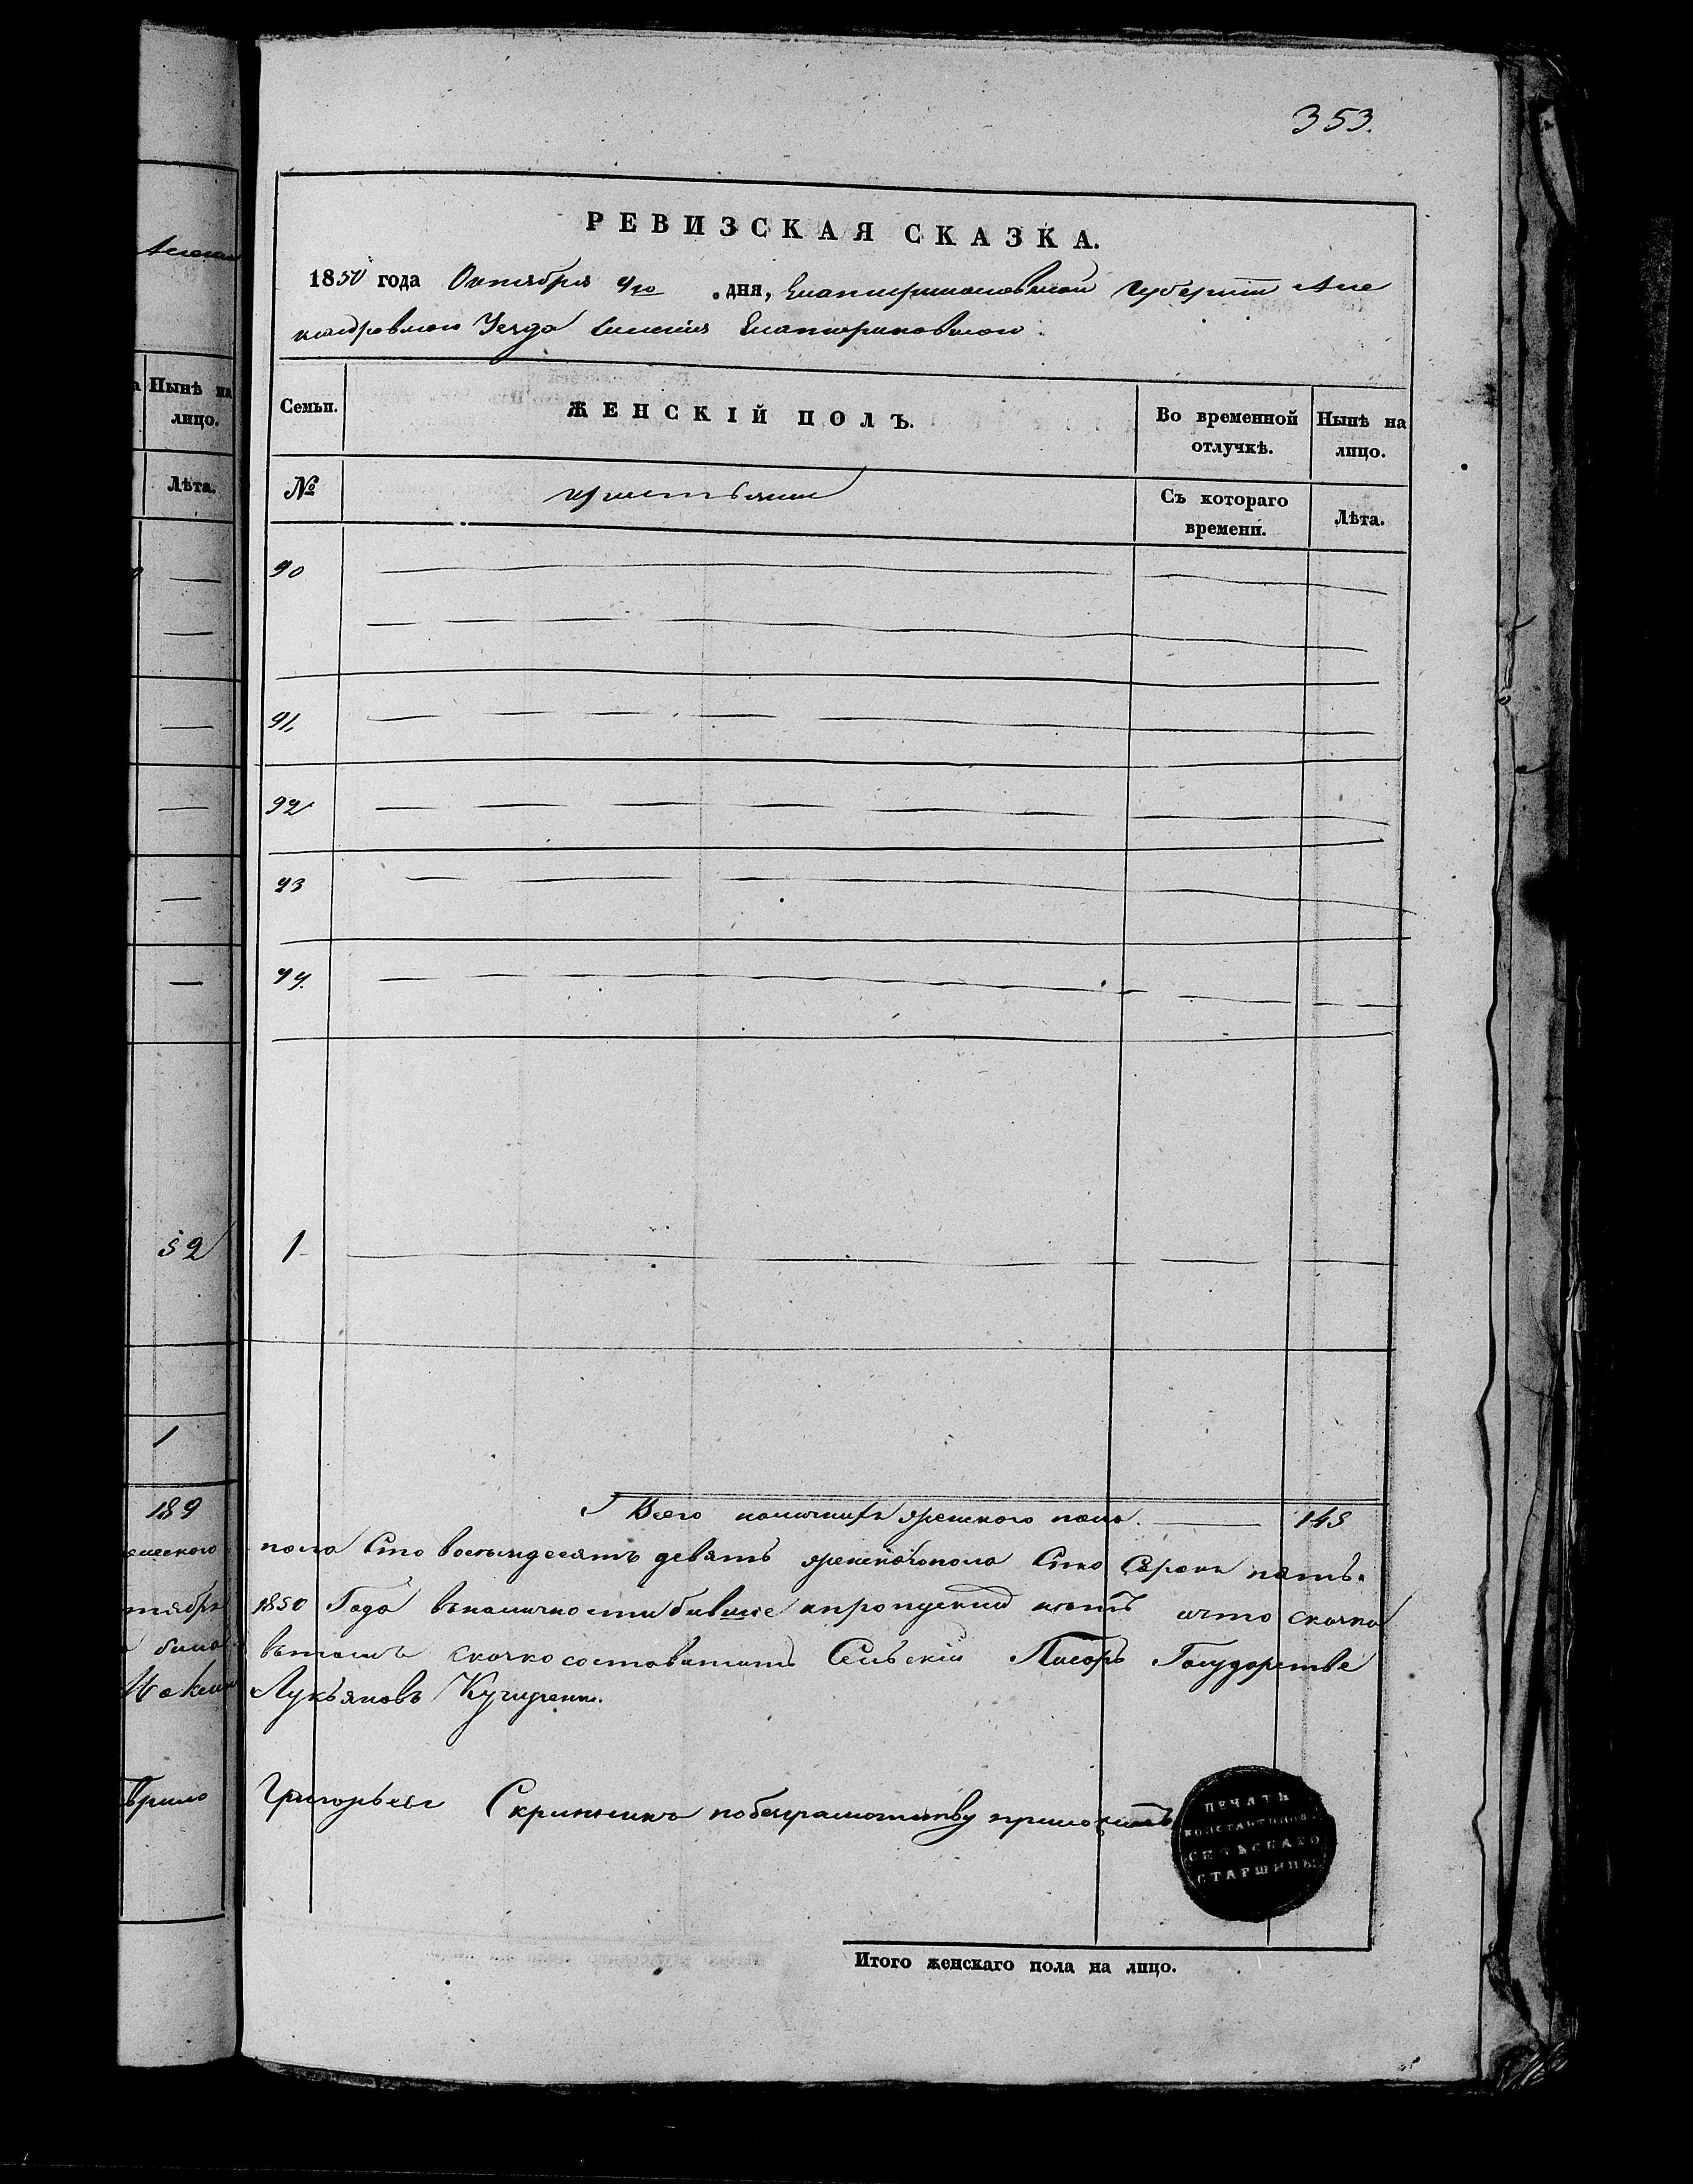 353.
РЕВИЗСКАЯ СКАЗКА.
1850 года Октября дня, Екатеринославской Губернии Але
ксандровского Уезда селения
Ныне на
лицо.
Лѣта.
Семьи.
ЖЕНСКІЙ ПОЛЪ.
Во временной
отлучкѣ.
Нынѣ на
лицо.
№
Съ котораго
времени.
Лѣта.
90
91
92
93
94.
52
1
1
189
Всего наличныхъ женского пола. 145
пола Сто восемьдесятъ девять женского пола Сто Сорокъ пять.
1850 Года въ наличности бывшие и пропусков нетъ и что сказка
Сельский Писарь Государстве
Лукьяновъ
Григорьевъ по безграмотству приложилъ
ПЕЧАТЬ
КОНСТАНТИНОВ.
СЕЛЬСКАГО
СТАРШИНЫ
Итого женскаго пола на лицо.